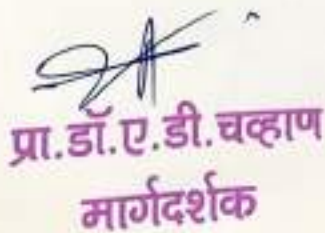 प्रा.डॉ.ए.डी.चव्हाण
मार्गदर्शक